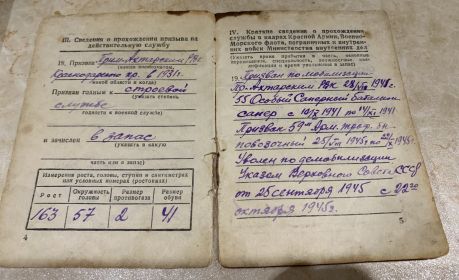 III. Сведения о прохождении призыва на
действительную службу
18. Призван Прим.-Ахтарским РВК
Краснодарского кр. в 1931 г.
Признан годным к строевой
службе
(указать степень годности)
и зачислен в запас
(указать в какую
часть или в запас)
Измерения роста, головы, ступни в сантиметрах
или условных номерах (ростовках)
Рост
Окружность головы
Размер противогаза
Размер обуви
163 57 2 41
4
IV. Краткие сведения о прохождении
службы в кадрах Красной Армии, Военно-
Морского флота, пограничных и внутрен-
них войск Министерства внутренних дел
19. Призван по мобилизации
Пр.-Ахтарским РВК 28/VIII 1941 г.
55 Особый Саперный батальон
сапер с 10/IX 1941 по 14/XI 1941
Призван 59
повозочный 25/VIII 1945 г. по 22/X 1945 г.
Уволен по демобилизации
Указом Верховного Совета СССР
от 25 сентября 1945 с 22го
октября 1945 г.
5